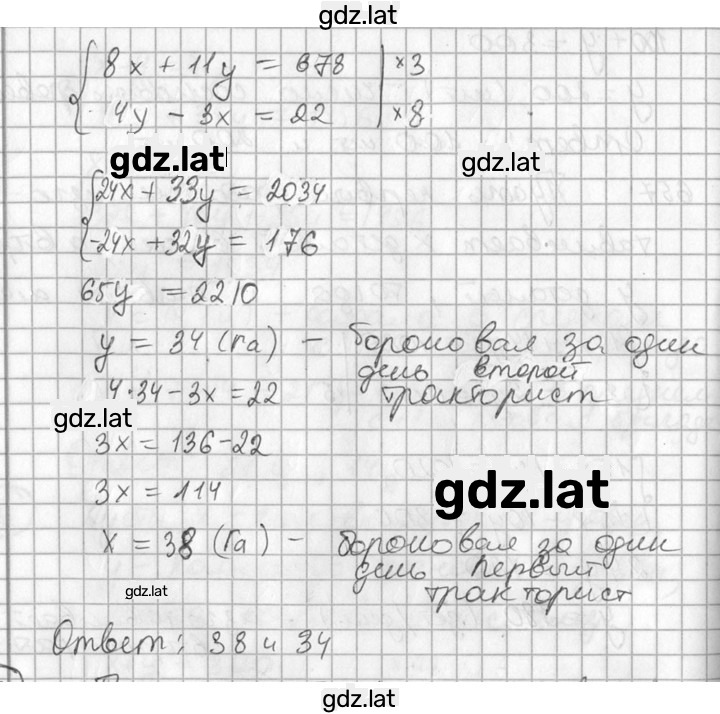 gdz.lat
8x + 11y = 678 | ×3
4y − 3x = 22 | ×8
gdz.lat
gdz.lat
24x + 33y = 2034
-24x + 32y = 176
65y = 2210
y = 34 (га) – бороновал за один
день второй
4·34 − 3x = 22
тракторист
gdz.lat
3x = 136 − 22
3x = 114
gdz.lat
x = 38 (га) – бороновал за один
день первый
gdz.lat
тракторист
Ответ: 38 и 34
gdz.lat